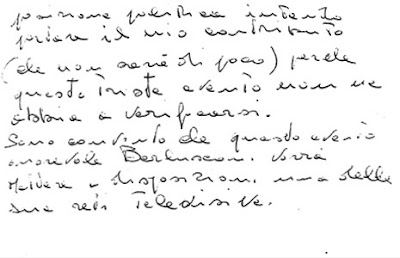 posizione politica intendo
portare il mio contributo
(che non sarà di poco) perchè
questo triste evento non ne
abbia a verificarsi.
Sono convinto che questo evento
onorevole Berlusconi vorrà
mettere a disposizione una delle
sue reti televisive.